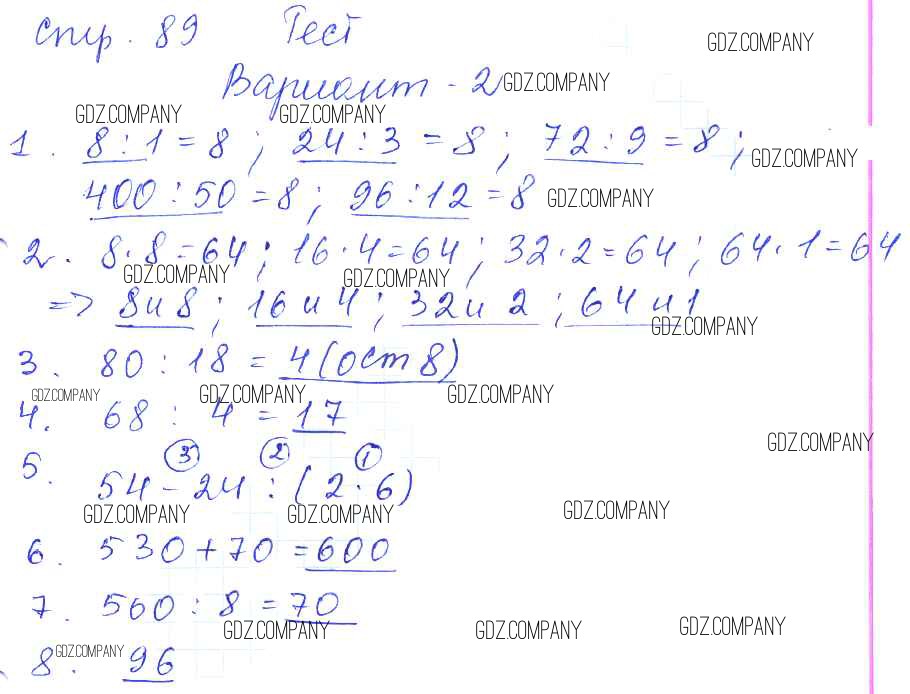 стр. 89 Тест
GDZ.COMPANY
Вариант - 2 GDZ.COMPANY
GDZ.COMPANY GDZ.COMPANY
1. 8 : 1 = 8 ; 24 : 3 = 8 ; 72 : 9 = 8 ;
GDZ.COMPANY
400 : 50 = 8 ; 96 : 12 = 8 GDZ.COMPANY
2. 8 · 8 = 64 ; 16 · 4 = 64 ; 32 · 2 = 64 ; 64 · 1 = 64
GDZ.COMPANY GDZ.COMPANY
=> 8 и 8 ; 16 и 4 ; 32 и 2 ; 64 и 1
GDZ.COMPANY
3. 80 : 18 = 4 (ост 8)
GDZ.COMPANY GDZ.COMPANY GDZ.COMPANY
4. 68 : 4 = 17
GDZ.COMPANY
3 2 1
5. 54 - 24 : (2 · 6)
GDZ.COMPANY GDZ.COMPANY GDZ.COMPANY
6. 530 + 70 = 600
7. 560 : 8 = 70
GDZ.COMPANY GDZ.COMPANY GDZ.COMPANY
8. GDZ.COMPANY 96